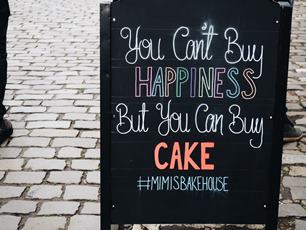 You Can't Buy
HAPPINESS
But You Can Buy
CAKE
#MIMISBAKEHOUSE